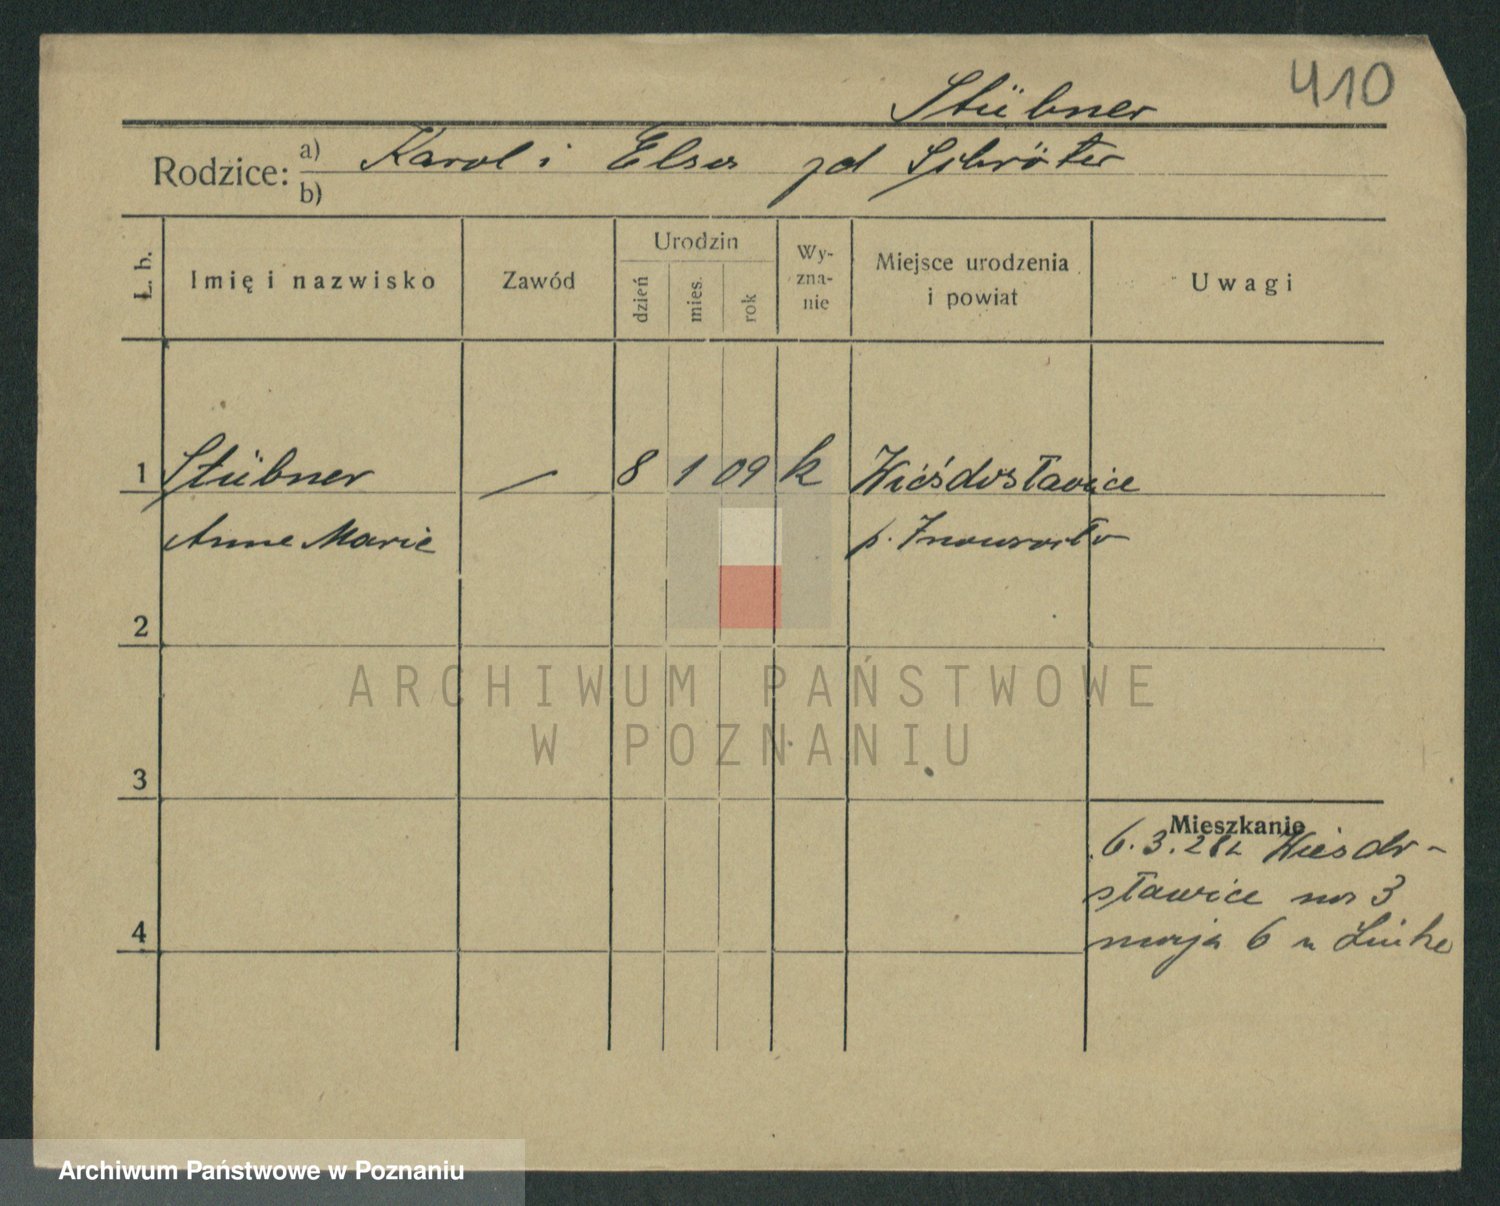 410
Stübner
Rodzice: a) Karol i Elsa zd Schröter
b)
L. b.
Imię i nazwisko
Zawód
Urodzin
dzień
mies.
rok
Wy-
zna-
nie
Miejsce urodzenia
i powiat
Uwagi
1 Stübner — 8 1 09 k
Anne Marie p.
2
ARCHIWUM PAŃSTWOWE
W POZNANIU
3
Mieszkanie
6.3.28
sławice na 3
4
maja 6 u Linke
Archiwum Państwowe w Poznaniu